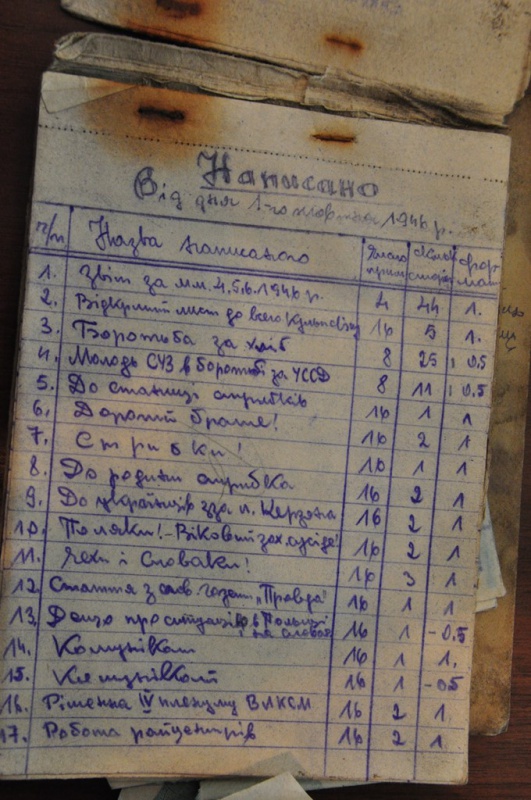 Написано
Від дня 1-го жовтня 1946 р.
ч/п Назва написаного прим. стор. фор-мат
1. Звіт за м.м. 4.5.6.1946 р. 4 44 1.
2. Відкритий лист до всего 16 5 1.
3. Боротьба за хліб 8 25 0.5
4. Молодь СУЗ в боротьбі за УССД 8 11 0.5
5. До станиці стрибків 16 1 1
6. Дорогий брате! 16 2 1
7. Стрибки! 16 1 1
8. До родини стрибка 16 2 1
9. До українців зза л. Керзона 16 2 1
10. Поляки! - Віковий зах. сусіде! 16 2 1
11. Чехи і Словаки! 16 3 1
12. Стаття з слов. газети „Правда" 16 1 1
13. Дещо про ситуацію в Польщі 16 1 - 0.5
і на Словач
14. Комунікат 16 1 1.
15. Комунікат 16 1 - 05
16. Рішення IV пленуму ВЛКСМ 16 2 1
17. Робота райцентрів 16 2 1